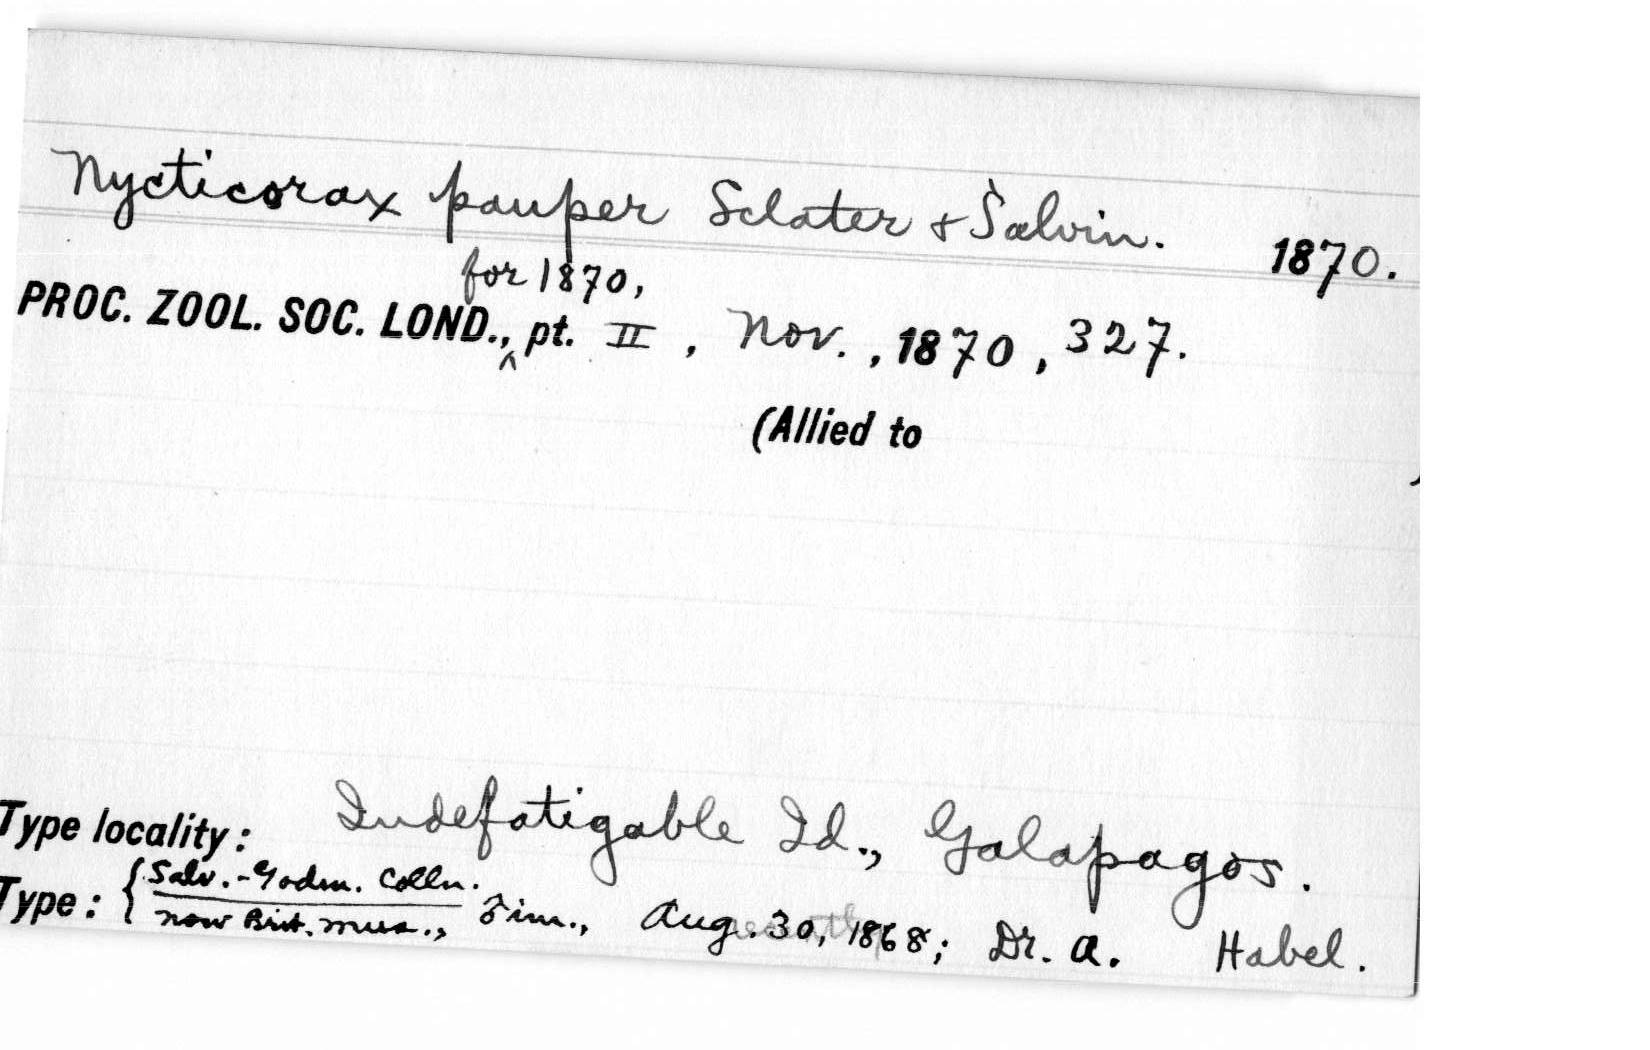 Nycticorax pauper Sclater & Salvin. 1870.
for 1870,
PROC. ZOOL. SOC. LOND., ^ pt. II, Nov., 1870, 327.
(Allied to )
Type locality: Indefatigable Id., Galapagos.
Type: { Salv.-Godm. Colln.
now Brit. Mus., ♂ im., Aug. 30, 1868; Dr. A. Habel.